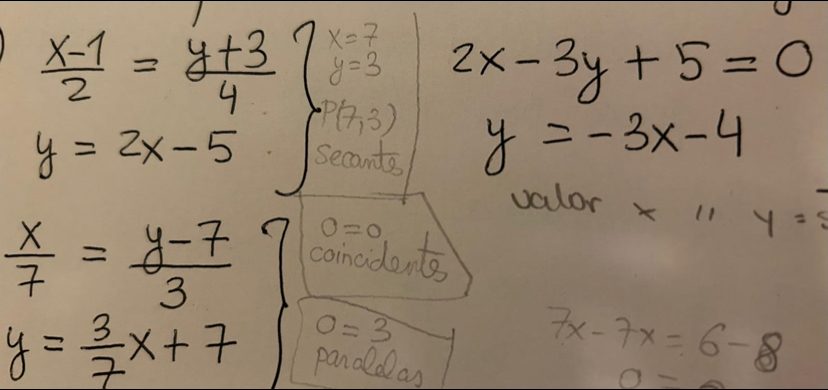 x-1/2 = y+3/4
y = 2x-5
x=7
y=3
P(7,3)
secantes
2x-3y+5=0
y=-3x-4
valor x " y =
x/7 = y-7/3
y = 3/7 x+7
0=0
coincidentes
0=3
paralelas
7x-7x=6-8
0=